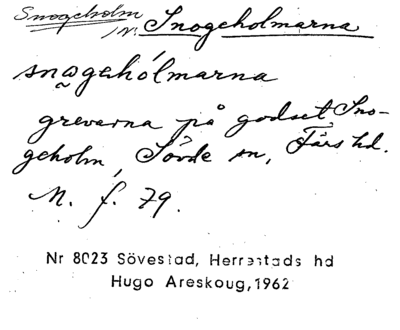 Snogeholm
/N. Snogeholmarna
snogehólmarna
grevarna på godset Sno-
geholm, Sövde sn, Färs hd.
M. f. 79.
Nr 8023 Sövestad, Herrestads hd
Hugo Areskoug, 1962